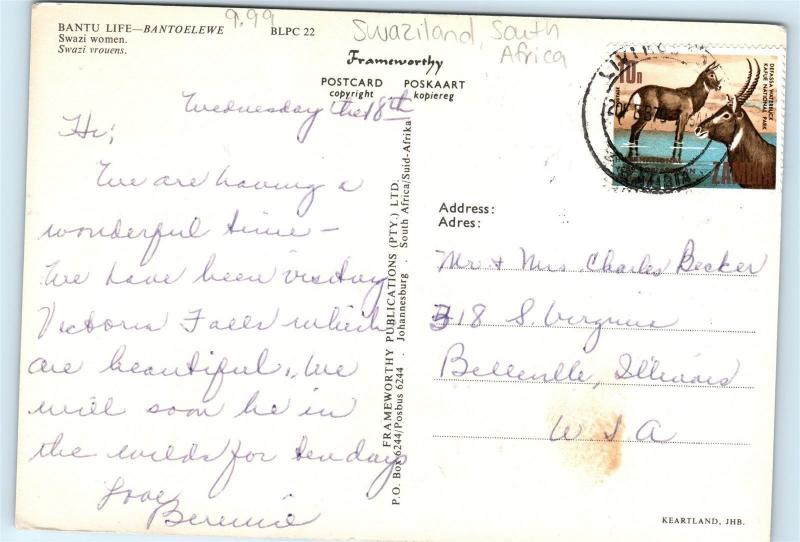 9.99
BANTU LIFE—BANTOELEWE BLPC 22
Swazi women.
Swazi vrouens.
Swaziland, South
Africa
Frameworthy
POSTCARD POSKAART
copyright kopiereg
10n
DEFASSA WATERBUCK
KAFUE NATIONAL PARK
ZAMBIA
Wednesday the 18th
Hi;
We are having a
wonderful time –
We have been visiting
Victoria Falls which
are beautiful. We
will soon be in
the wilds for ten days
Love
Bernnie
FRAMEWORTHY PUBLICATIONS (PTY.) LTD.
P.O. Box 6244/Posbus 6244 . Johannesburg . South Africa/Suid-Afrika
Address:
Adres:
Mr. & Mrs Charles Becker
318 S. Virginia
Belleville, Illinois
USA
KEARTLAND, JHB.